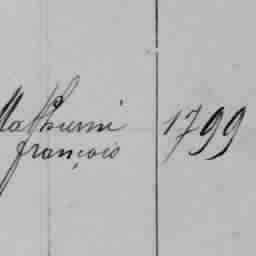 Mathurin 1799
françois